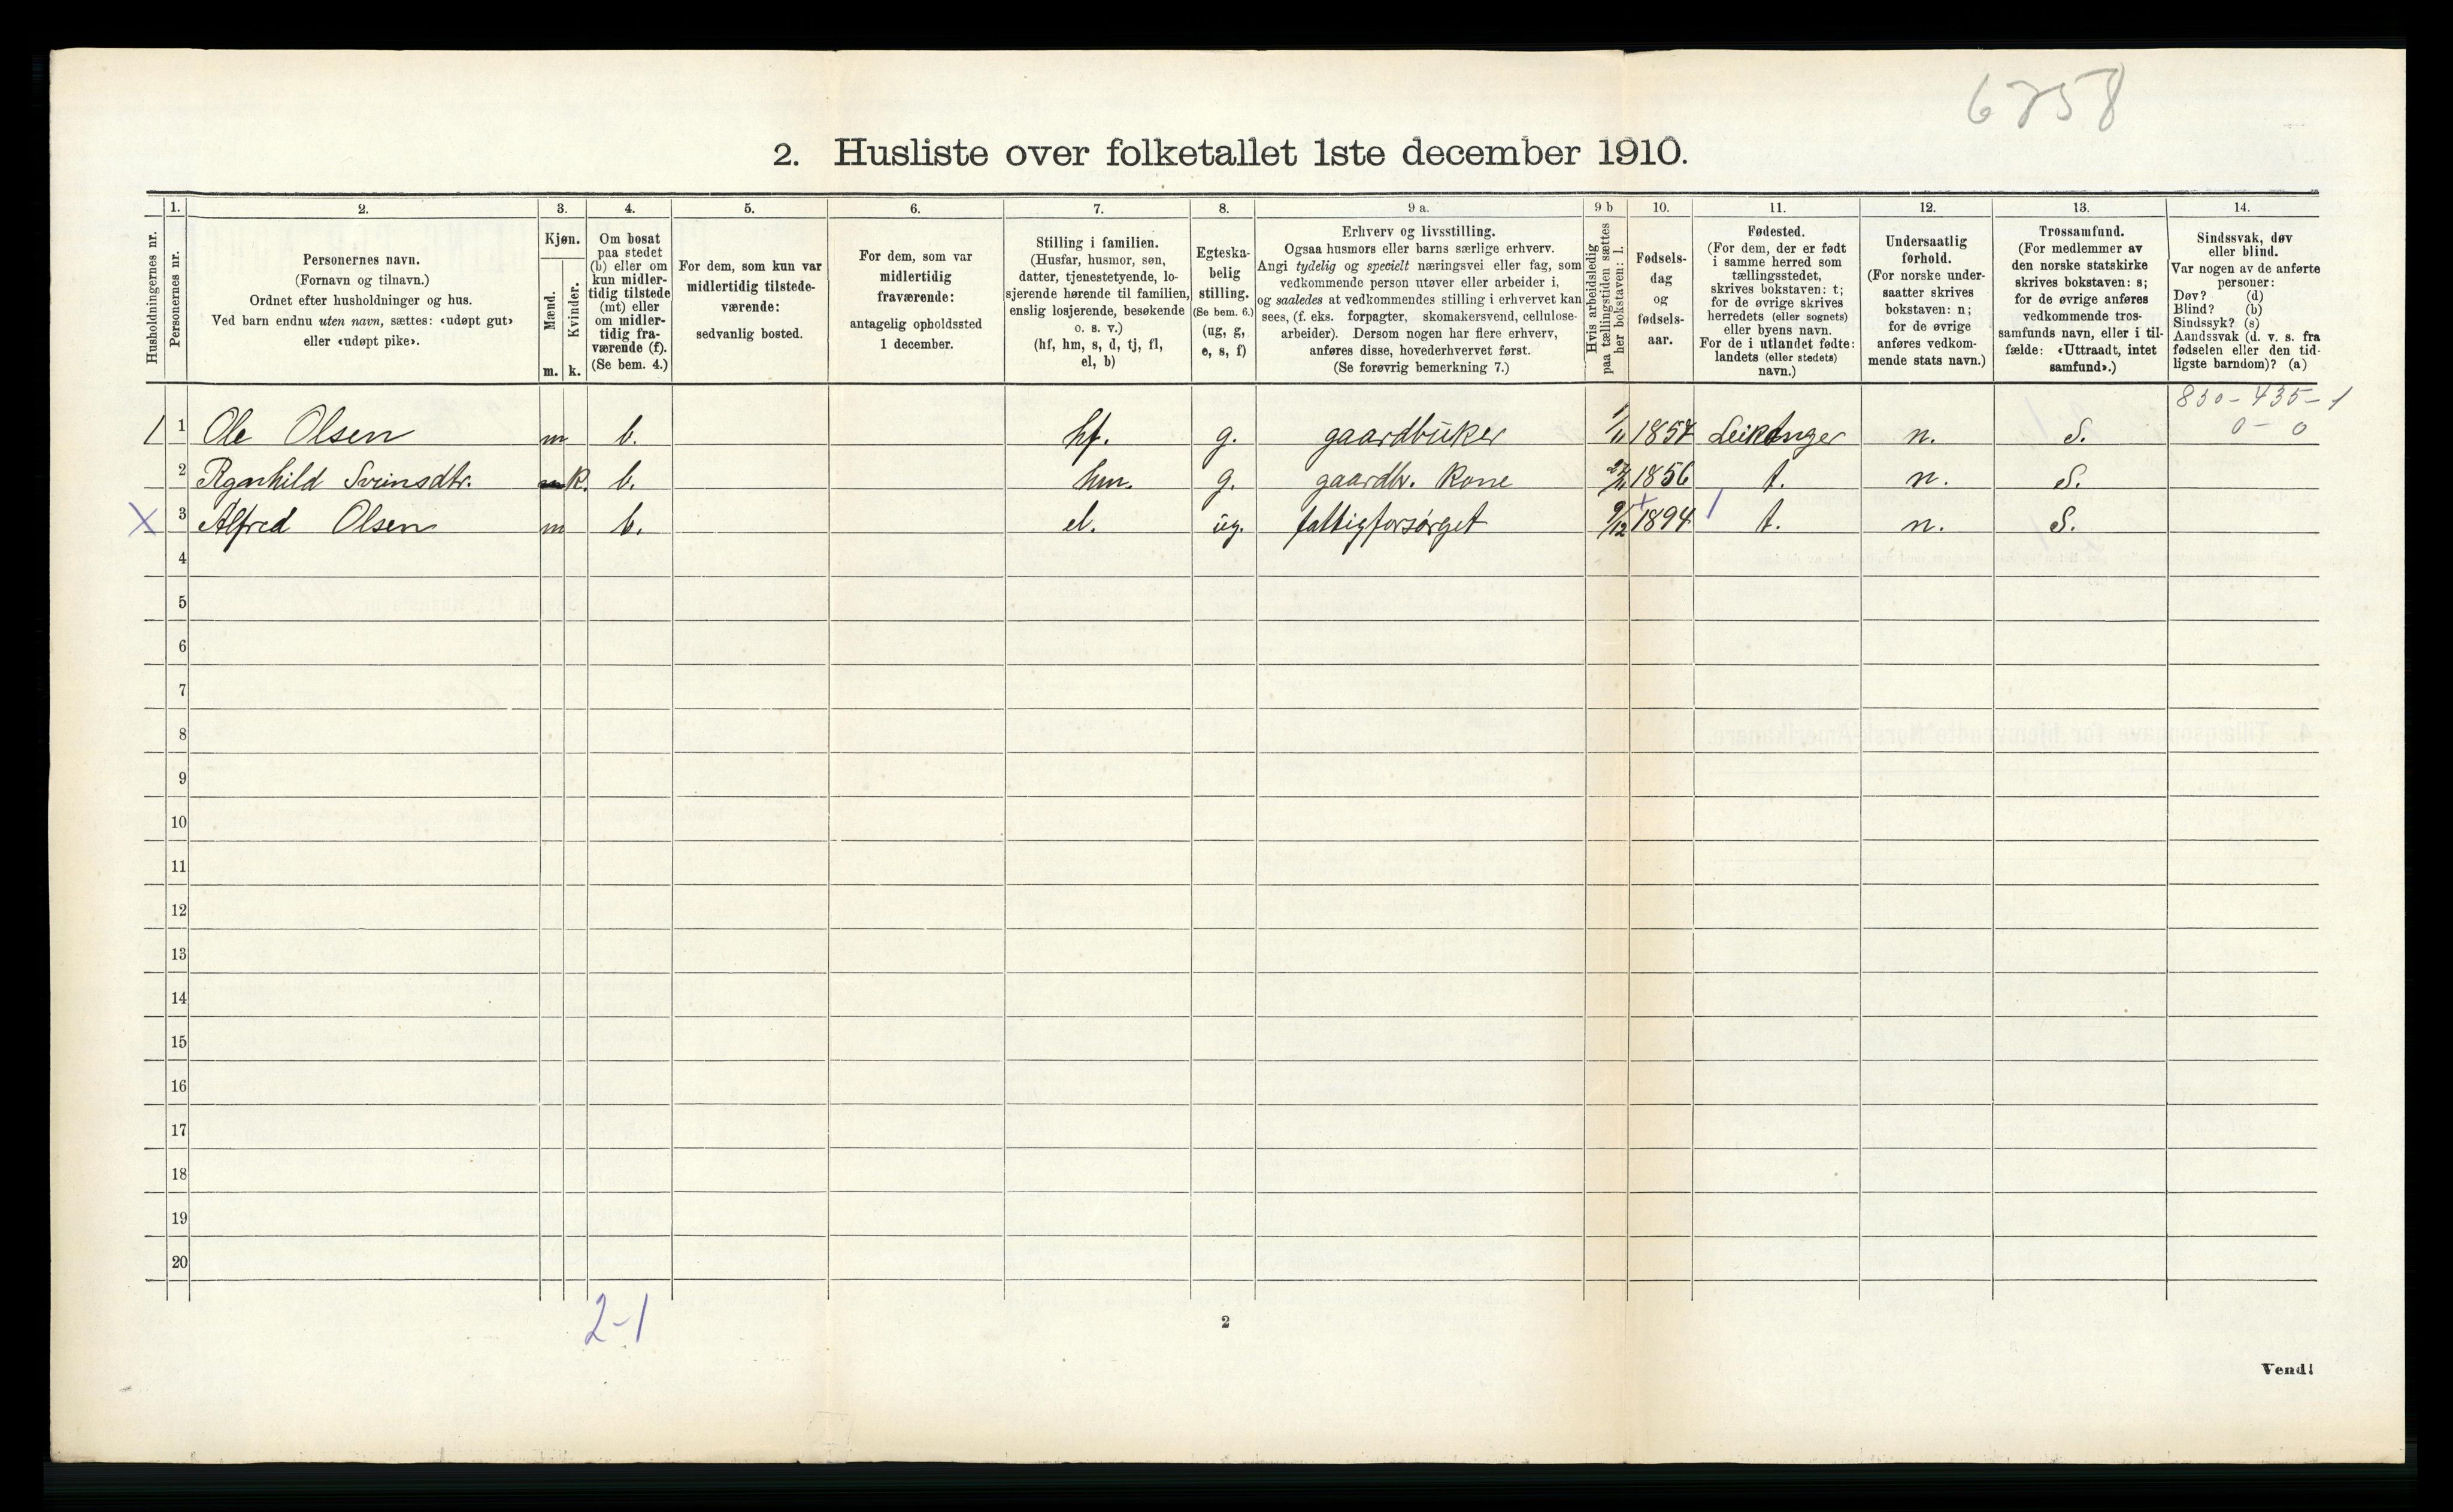 6758
2. Husliste over folketallet 1ste december 1910.
Husholdningernes nr.
1.
Personernes nr.
2.
Personernes navn.
(Fornavn og tilnavn.)
Ordnet efter husholdninger og hus.
Ved barn endnu uten navn, sættes: «udøpt gut»
eller «udøpt pike».
3.
Kjøn.
Mænd.
Kvinder.
m. k.
4.
Om bosat
paa stedet
(b) eller om
kun midler-
tidig tilstede
(mt) eller
om midler-
tidig fra-
værende (f).
(Se bem. 4.)
5.
For dem, som kun var
midlertidig tilstede-
værende:
sedvanlig bosted.
6.
For dem, som var
midlertidig
fraværende:
antagelig opholdssted
1 december.
7.
Stilling i familien.
(Husfar, husmor, søn,
datter, tjenestetyende, lo-
sjerende hørende til familien,
enslig losjerende, besøkende
o. s. v.)
(hf, hm, s, d, tj, fl,
el, b)
8.
Egteska-
belig
stilling.
(Se bem. 6.)
(ug, g,
e, s, f)
9 a.
Erhverv og livsstilling.
Ogsaa husmors eller barns særlige erhverv.
Angi tydelig og specielt næringsvei eller fag, som
vedkommende person utøver eller arbeider i,
og saaledes at vedkommendes stilling i erhvervet kan
sees, (f. eks. forpagter, skomakersvend, cellulose-
arbeider). Dersom nogen har flere erhverv,
anføres disse, hovederhvervet først.
(Se forøvrig bemerkning 7.)
9 b
Hvis arbeidsledig
paa tællingstiden sættes
her bokstaven: l.
10.
Fødsels-
dag
og
fødsels-
aar.
11.
Fødested.
(For dem, der er født
i samme herred som
tællingsstedet,
skrives bokstaven: t;
for de øvrige skrives
herredets (eller sognets)
eller byens navn.
For de i utlandet fødte:
landets (eller stedets)
navn.)
12.
Undersaatlig
forhold.
(For norske under-
saatter skrives
bokstaven: n;
for de øvrige
anføres vedkom-
mende stats navn.)
13.
Trossamfund.
(For medlemmer av
den norske statskirke
skrives bokstaven: s;
for de øvrige anføres
vedkommende tros-
samfunds navn, eller i til-
fælde: «Uttraadt, intet
samfund».)
14.
Sindssvak, døv
eller blind.
Var nogen av de anførte
personer:
Døv? (d)
Blind? (b)
Sindssyk? (s)
Aandssvak (d. v. s. fra
fødselen eller den tid-
ligste barndom)? (a)
830-435-1
0-0
1 1 Ole Olsen m b. hf. g. gaardbruker 1/11 1857 Leikanger n. S.
2 Ragnhild Sveinsdtr. k. b. hm. g. gaardbr. kone 1856 t. n. S.
X 3 Alfred Olsen m b. el. ug. fattigforsørget 9/12 1894 t. n. S.
4
5
6
7
8
9
10
11
12
13
14
15
16
17
18
19
20
2-1
2
Vend!